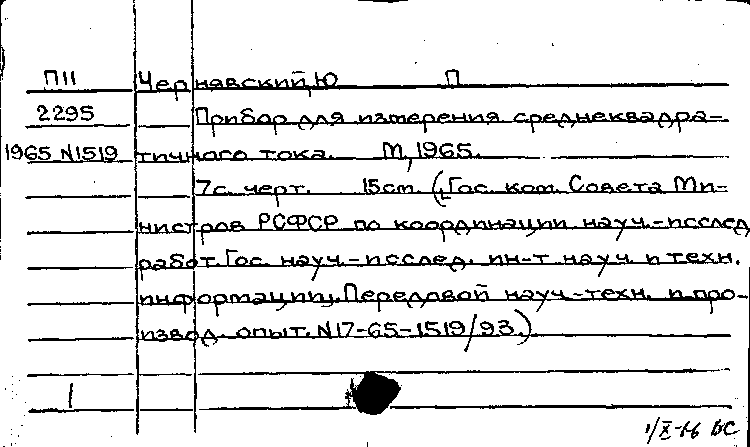 П11 Чернявский, Ю П
2295 Прибор для измерения среднеквадра-
1965 N1519 тичного тока. М, 1965.
7с. черт. 15см. (Гос. ком. Совета Ми-
нистров РСФСР по координации науч.-исслед
работ. Гос. науч.-исслед. ин-т науч. и техн.
информации. Передовой науч.-техн. и про-
извод. опыт. N17-65-1519/93.)
1